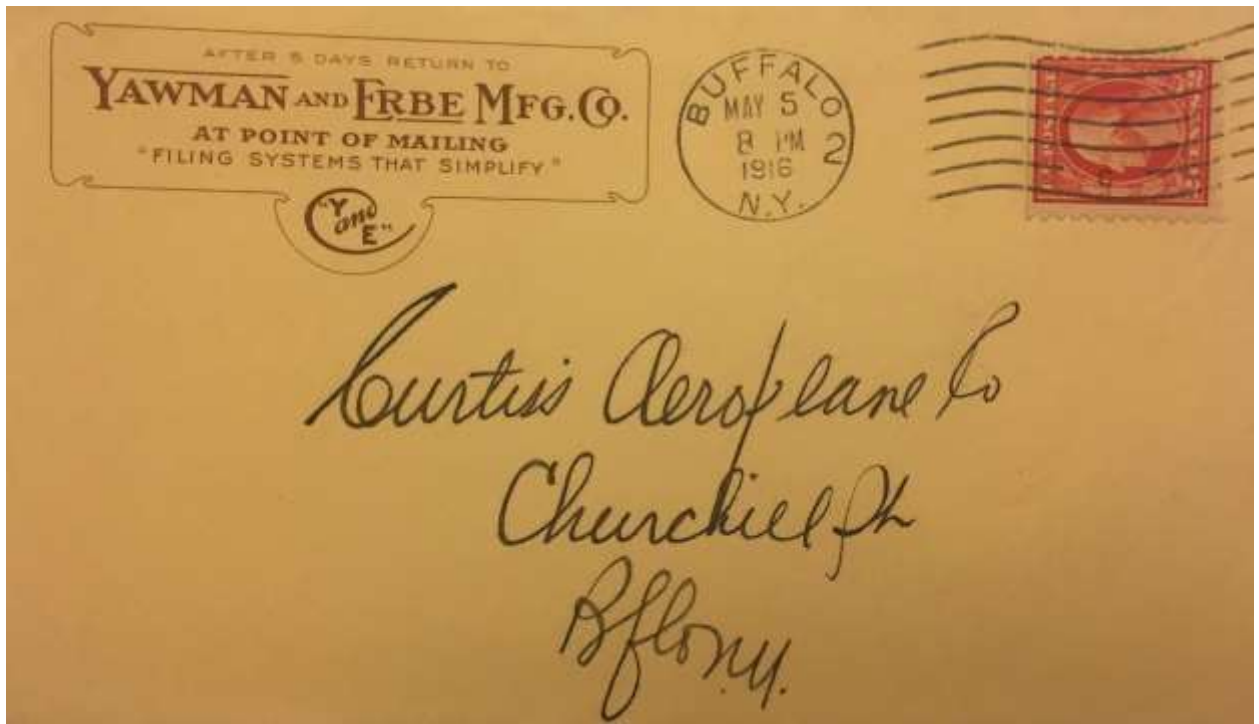 AFTER 5 DAYS RETURN TO
YAWMAN AND ERBE MFG. CO.
AT POINT OF MAILING
"FILING SYSTEMS THAT SIMPLIFY"
"Y and E"
BUFFALO 2
MAY 5
8 PM
1916
N.Y.
Curtiss Aeroplane Co
Churchill
Bflo N.Y.